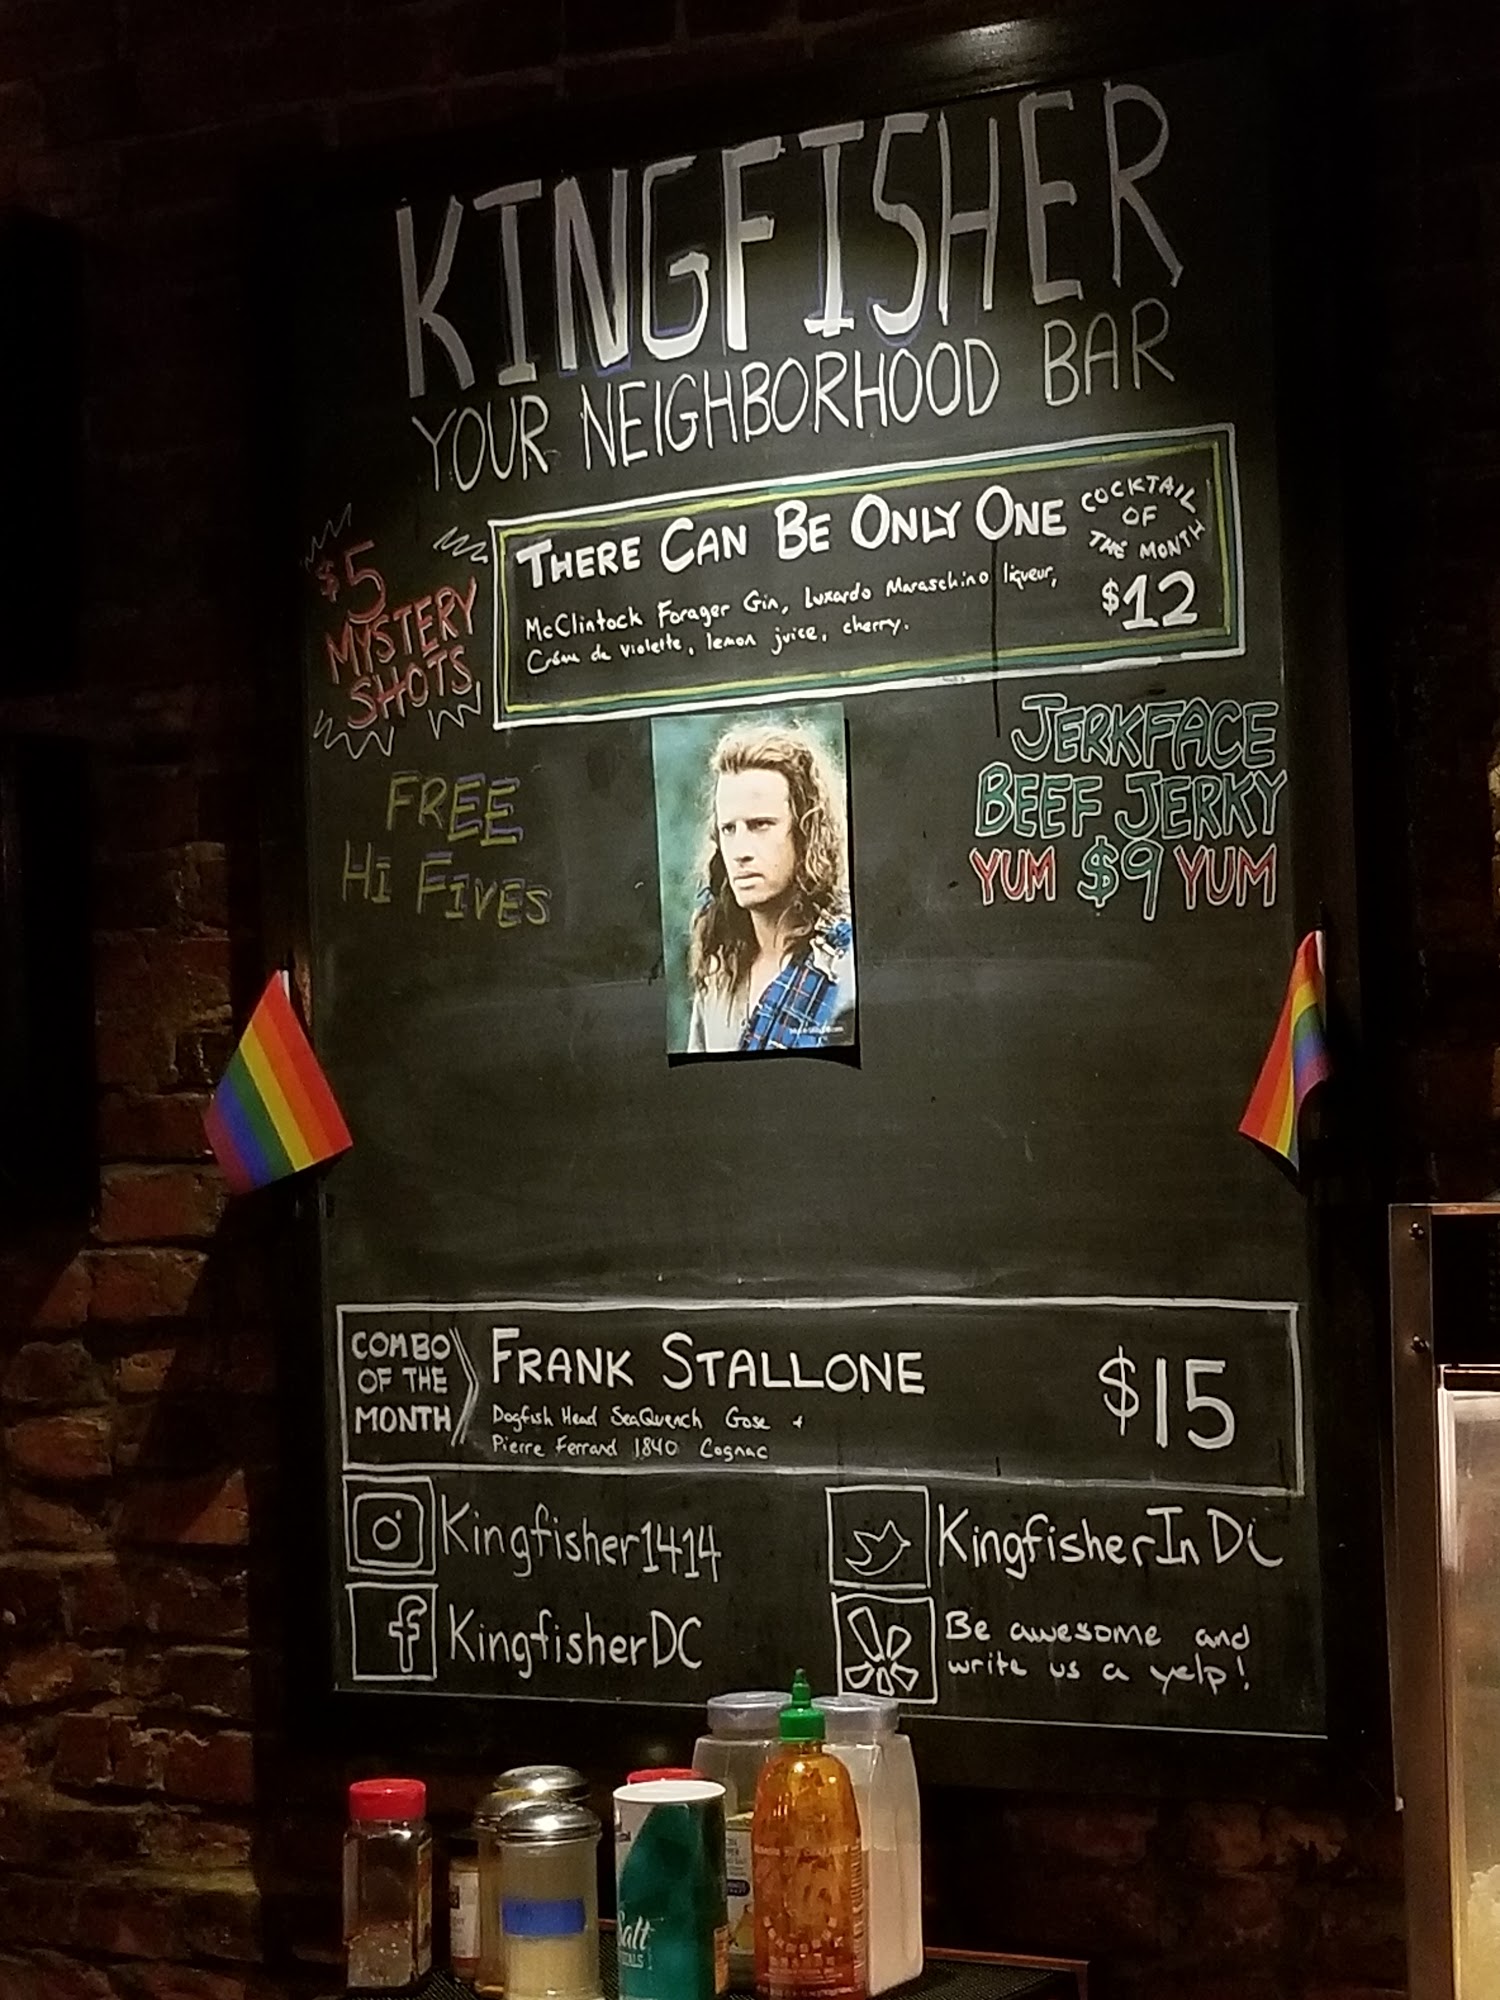 KINGFISHER
YOUR NEIGHBORHOOD BAR
THERE CAN BE ONLY ONE
COCKTAIL
OF
THE MONTH
McClintock Forager Gin, Luxardo Maraschino liqueur,
Crème de Violette, lemon juice, cherry.
$12
$5
MYSTERY
SHOTS
FREE
HI FIVES
JERKFACE
BEEF JERKY
YUM $9 YUM
COMBO
OF THE
MONTH
FRANK STALLONE
Dogfish Head SeaQuench Gose +
Pierre Ferrand 1840 Cognac
$15
Kingfisher1414
KingfisherInDC
f KingfisherDC
Be awesome and
write us a yelp!
Salt